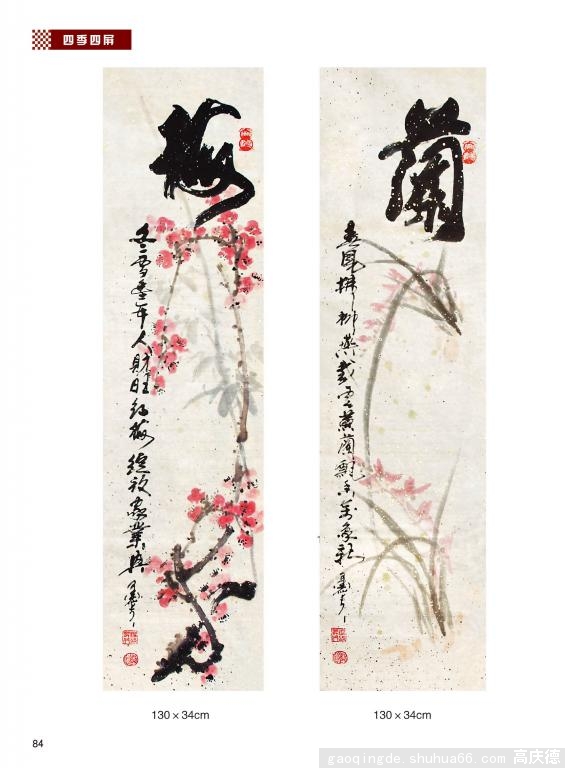 四季四屏
梅
冬雪丰年人財旺红梅绽放家業興
蘭
春風拂柳燕戲雲蕙蘭飄香万象新
130×34cm
130×34cm
84
gaoqingde.shuhua66.com 高庆德